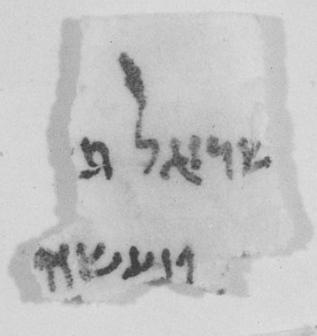 שראל ת
ויעשו